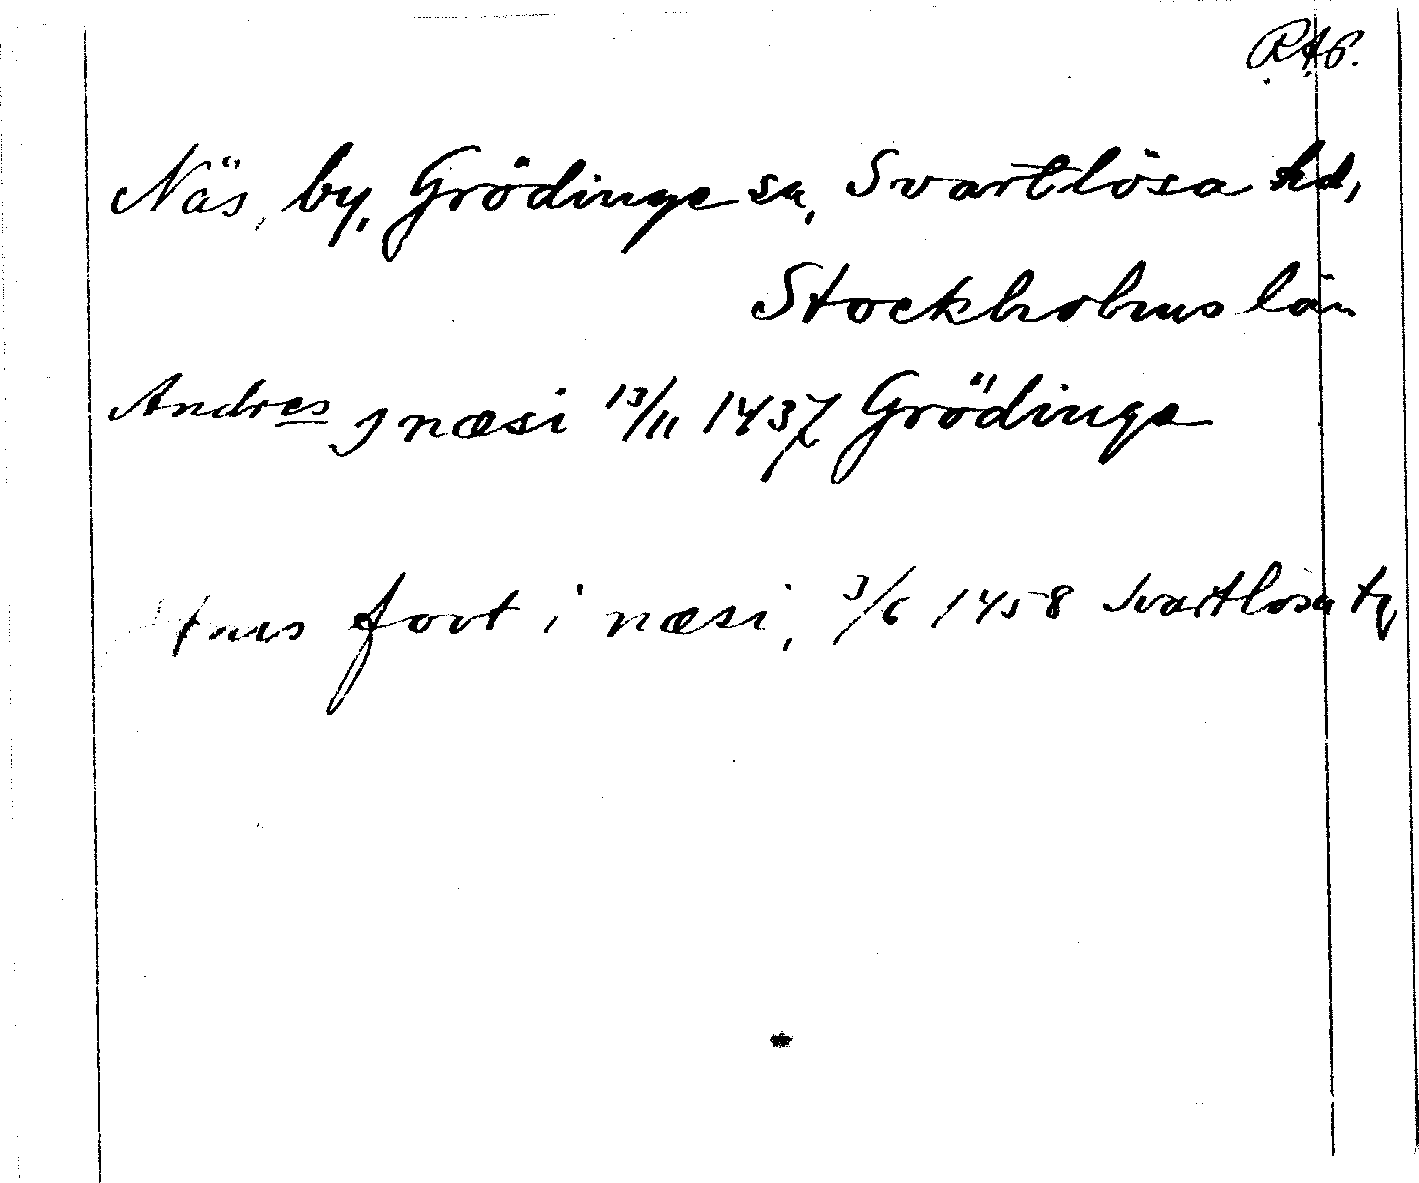 RAP.
Näs, by, Grödinge sn, Svartlösa hd,
Stockholms län
Andres j næsi 13/11 1437 Grödinge
fovt i næsi, 3/6 1458 Svartlösa